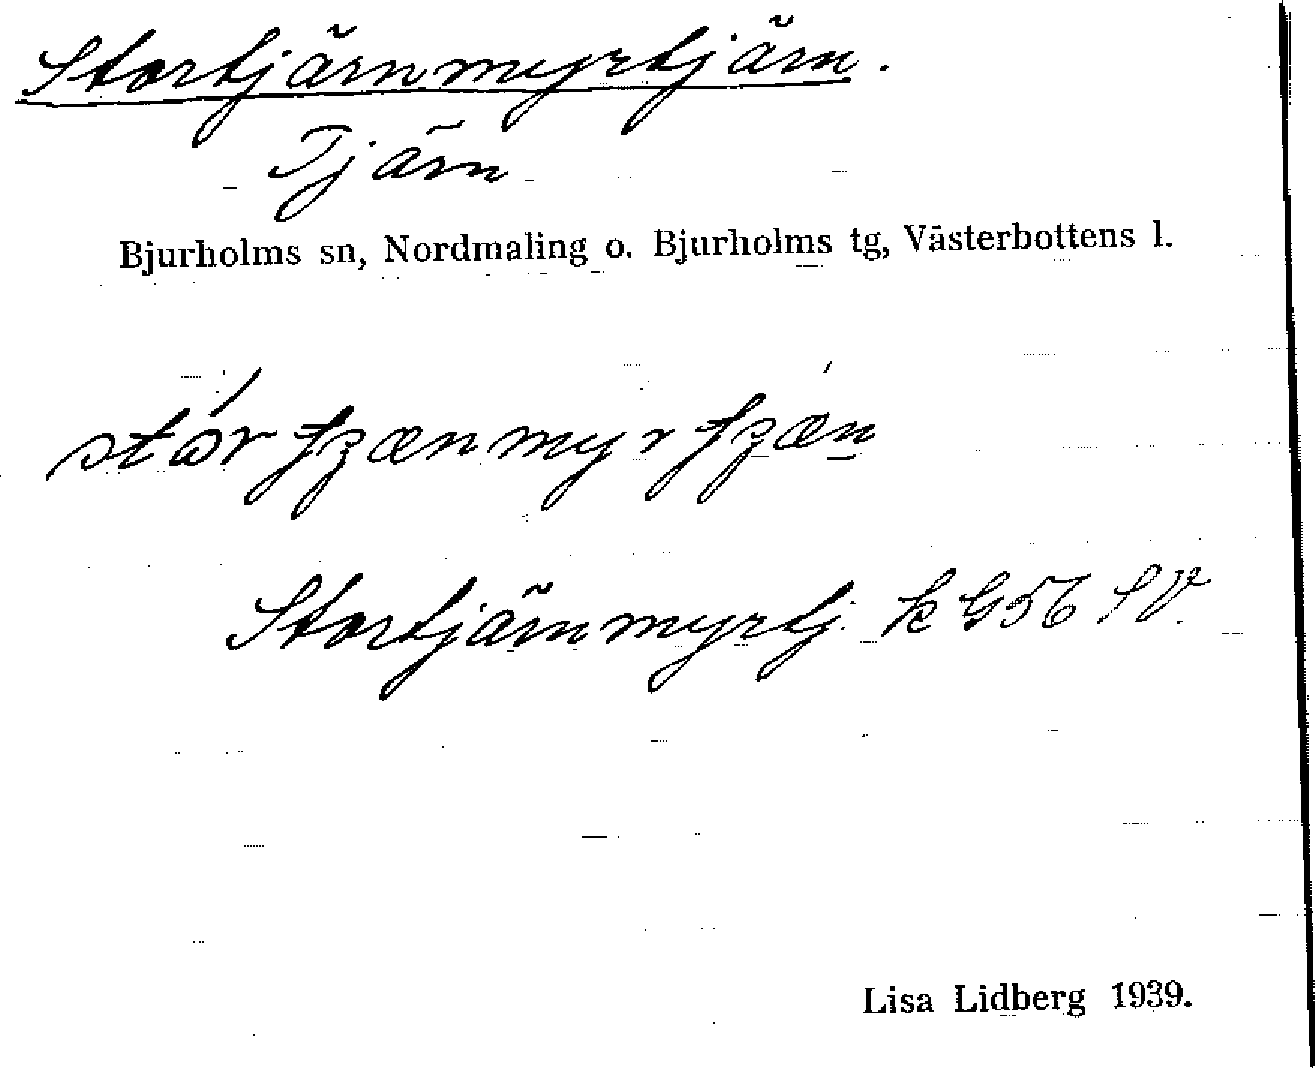 Stortjärnmyrtjärn.
Tjärn
Bjurholms sn, Nordmaling o. Bjurholms tg, Västerbottens l.
Stortjärnmyrtj. k G56 SV.
Lisa Lidberg 1939.